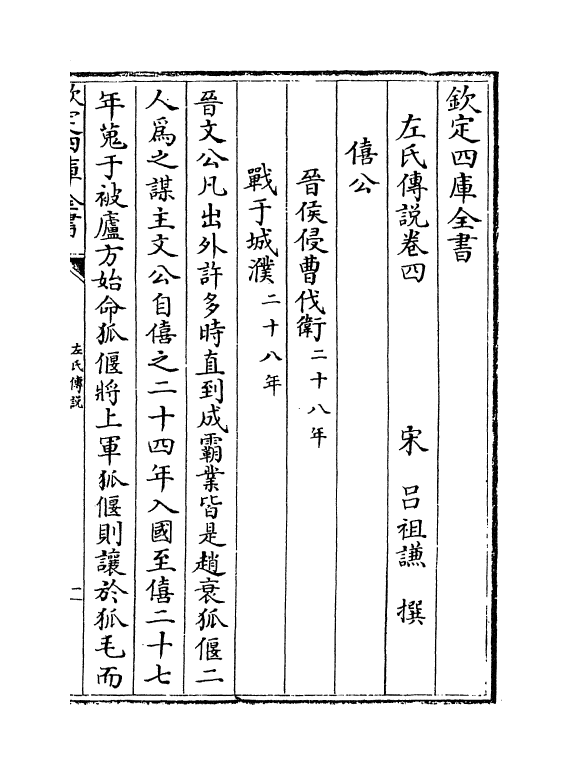 欽定四庫全書
左氏傳說卷四
宋 呂祖謙 撰
僖公
晉侯侵曹伐衛二十八年
戰于城濮二十八年
晉文公凡出外許多時直到成霸業皆是趙衰狐偃二
人爲之謀主文公自僖之二十四年入國至僖二十七
年蒐于被廬方始命狐偃將上軍狐偃則讓於狐毛而
欽定四庫全書
左氏傳說